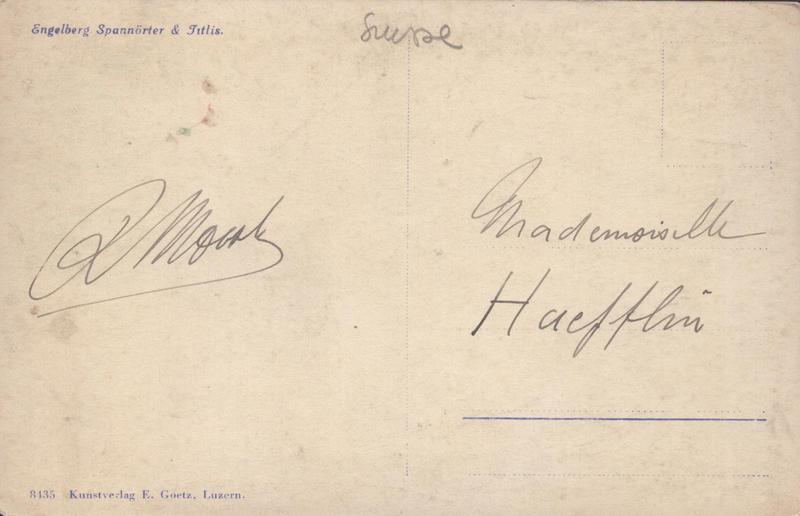 Engelberg Spannörter & Titlis.
Suisse
Mademoiselle
Haefflin
8435 Kunstverlag E. Goetz, Luzern.